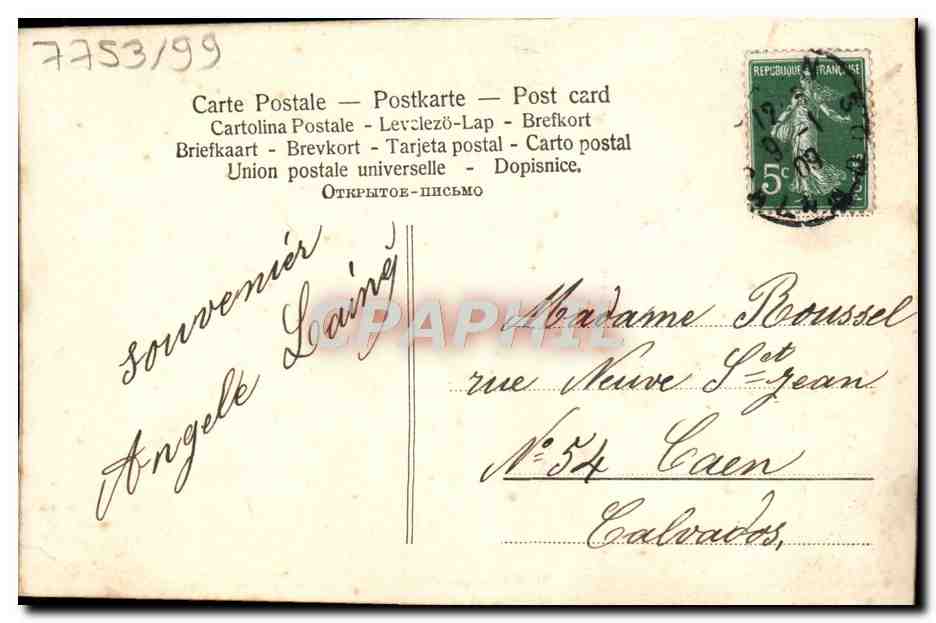 7753/99
Carte Postale — Postkarte — Post card
Cartolina Postale - Levelezö-Lap - Brefkort
Briefkaart - Brevkort - Tarjeta postal - Carto postal
Union postale universelle - Dopisnice.
Открытое-письмо
REPUBLIQUE FRANÇAISE
5c
POSTES
souvenir
Angele Lainé
CPAPHIL
Madame Roussel
rue Neuve St Jean
N° 54 Caen
Calvados,